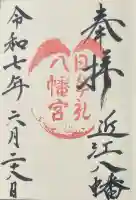 奉拝
近江八幡
日牟礼
八幡宮
令和七年
六月二八日